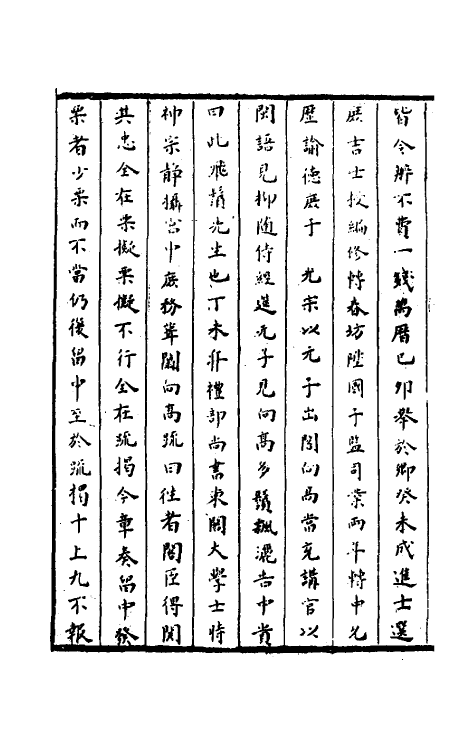 皆令辦不費一錢萬曆己卯舉於鄉癸未成進士選
庶吉士授編修轉春坊陞國子監司業兩年轉中允
歷諭德庶子　光宗以元子出閣向高當充講官以
閩語見抑隨侍經進元子見向高多鬚飄灑告中貴
曰此飛鬚先生也丁未升禮部尚書東閣大學士時
神宗靜攝宮中庶務叢闒向高疏曰往者閣臣得關
其忠全在票擬票擬不行全在疏揭今章奏留中發
票者少票而不當仍復留中至於疏揭十上九不報